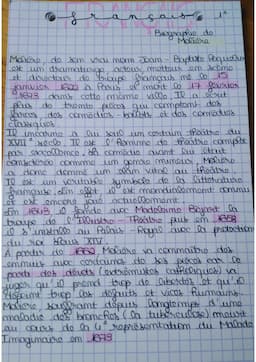 français 1°
Biographie de
Molière
Molière de son vrai nom Jean-Baptiste Poquelin
est un dramaturge acteur metteur en scène
et directeur de troupe français né le 15
janvier 1622 à Paris et mort le 17 février
1673 dans cette même ville. Il a écrit
plus de trente pièces qui comptent des
farces des comédies-ballets et des comédies
classiques
Il incarne à lui seul un certain théâtre du
XVII siècle. Il est l'homme de théâtre complet
par excellence. Sa comédie ayant su être
considérée comme un genre mineur, Molière
a donné un élan vital au théâtre
Il est un véritable symbole de la littérature
française. Elle effet est mondialement connu
et est encore joué actuellement
En 1643 il fonde avec Madeleine Béjart la
troupe de l'Illustre-Théâtre puis en 1658
il s'installe au Palais-Royal avec la protection
du roi Louis XIV.
A partir de 1662 Molière va connaître des
ennuis avec certaines de ses pièces car le
parti des dévots (extrémistes catholiques) va
juger qu'il prend trop de libertés et qu'il
dépeint trop les défauts et vices humains.
Molière souffrant depuis longtemps d'une
maladie des bronches (la tuberculose) mourut
au cours de la 4° représentation du Malade
Imaginaire en 1673